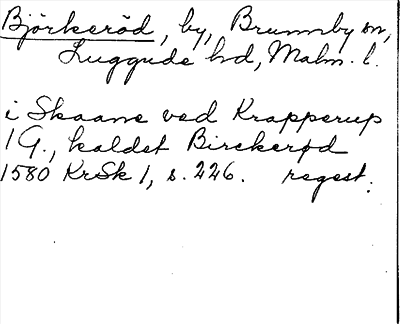 Björkeröd, by, Brunnby sn,
Luggude hd, Malm. l.
i Skaane ved Krapperup
1 G., kaldet Birckerød
1580 KrSk 1, s. 226. regest.